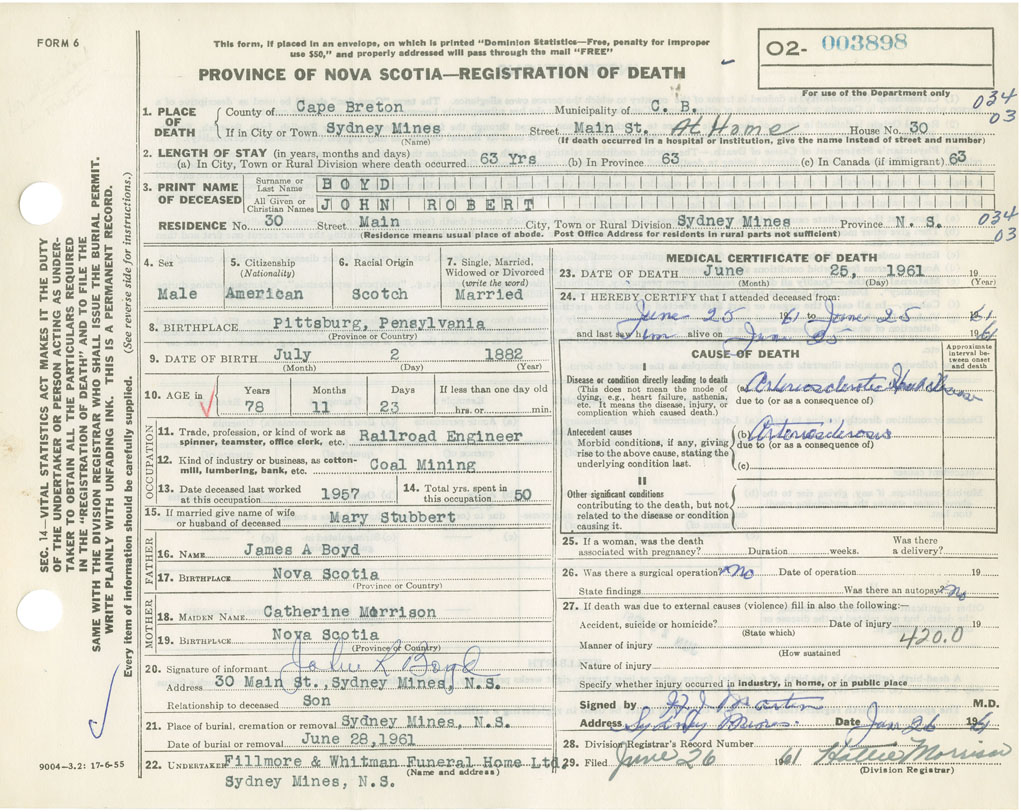 FORM 6
This form, if placed in an envelope, on which is printed "Dominion Statistics—Free, penalty for improper
use $50," and properly addressed will pass through the mail "FREE"
O2- 003898
For use of the Department only
PROVINCE OF NOVA SCOTIA—REGISTRATION OF DEATH
034
03
1. PLACE OF DEATH
County of Cape Breton Municipality of C. B.
If in City or Town Sydney Mines Street Main St. At Home House No. 30
(Name) (If death occurred in a hospital or institution, give the name instead of street and number)
2. LENGTH OF STAY (in years, months and days)
(a) In City, Town or Rural Division where death occurred 63 Yrs (b) In Province 63 (c) In Canada (if immigrant) 63
3. PRINT NAME OF DECEASED
Surname or Last Name BOYD
All Given or Christian Names JOHN ROBERT
RESIDENCE No. 30 Street Main City, Town or Rural Division Sydney Mines Province N. S.
(Residence means usual place of abode. Post Office Address for residents in rural parts not sufficient)
034
03
4. Sex
Male
5. Citizenship
(Nationality)
American
6. Racial Origin
Scotch
7. Single, Married,
Widowed or Divorced
(write the word)
Married
8. BIRTHPLACE Pittsburg, Pensylvania
(Province or Country)
9. DATE OF BIRTH July 2 1882
(Month) (Day) (Year)
10. AGE in
Years Months Days If less than one day old
78 11 23 hrs. or min.
OCCUPATION
11. Trade, profession, or kind of work as
spinner, teamster, office clerk, etc. Railroad Engineer
12. Kind of industry or business, as cotton-
mill, lumbering, bank, etc. Coal Mining
13. Date deceased last worked
at this occupation 1957
14. Total yrs. spent in
this occupation 50
15. If married give name of wife
or husband of deceased Mary Stubbert
FATHER
16. NAME James A Boyd
17. BIRTHPLACE Nova Scotia
(Province or Country)
MOTHER
18. MAIDEN NAME Catherine Morrison
19. BIRTHPLACE Nova Scotia
(Province or Country)
20. Signature of informant John R Boyd
Address 30 Main St., Sydney Mines, N.S.
Relationship to deceased Son
21. Place of burial, cremation or removal Sydney Mines, N.S.
Date of burial or removal June 28,1961
22. UNDERTAKER Fillmore & Whitman Funeral Home Ltd.
(Name and address)
Sydney Mines, N.S.
9004—3.2: 17-6-55
MEDICAL CERTIFICATE OF DEATH
23. DATE OF DEATH June 25, 1961 19
(Month) (Day) (Year)
24. I HEREBY CERTIFY that I attended deceased from:
June 25 1961 to June 25 1961
and last saw him alive on June 25 1961
CAUSE OF DEATH
Approximate
interval be-
tween onset
and death
Disease or condition directly leading to death
(This does not mean the mode of
dying, e.g., heart failure, asthenia,
etc. It means the disease, injury, or
complication which caused death.)
(a) Arteriosclerotic Heart Disease
due to (or as a consequence of)
Antecedent causes
Morbid conditions, if any, giving
rise to the above cause, stating the
underlying condition last.
(b) Arteriosclerosis
due to (or as a consequence of)
(c)
II
Other significant conditions
contributing to the death, but not
related to the disease or condition
causing it.
25. If a woman, was the death
associated with pregnancy? Duration weeks.
Was there
a delivery?
26. Was there a surgical operation? No Date of operation 19
State findings Was there an autopsy? No
27. If death was due to external causes (violence) fill in also the following:—
Accident, suicide or homicide? Date of injury 19
(State which)
Manner of injury 420.0
(How sustained
Nature of injury
Specify whether injury occurred in industry, in home, or in public place
Signed by H J Martin M.D.
Address Sydney Mines. Date Jun 26 1961
28. Division Registrar's Record Number
29. Filed June 26 1961 Hattie Morrison
(Division Registrar)
SEC. 14—VITAL STATISTICS ACT MAKES IT THE DUTY
OF THE UNDERTAKER OR PERSON ACTING AS UNDER-
TAKER TO OBTAIN ALL THE PARTICULARS REQUIRED
IN THE "REGISTRATION OF DEATH" AND TO FILE THE
SAME WITH THE DIVISION REGISTRAR WHO SHALL ISSUE THE BURIAL PERMIT.
WRITE PLAINLY WITH UNFADING INK. THIS IS A PERMANENT RECORD.
Every item of information should be carefully supplied. (See reverse side for instructions.)